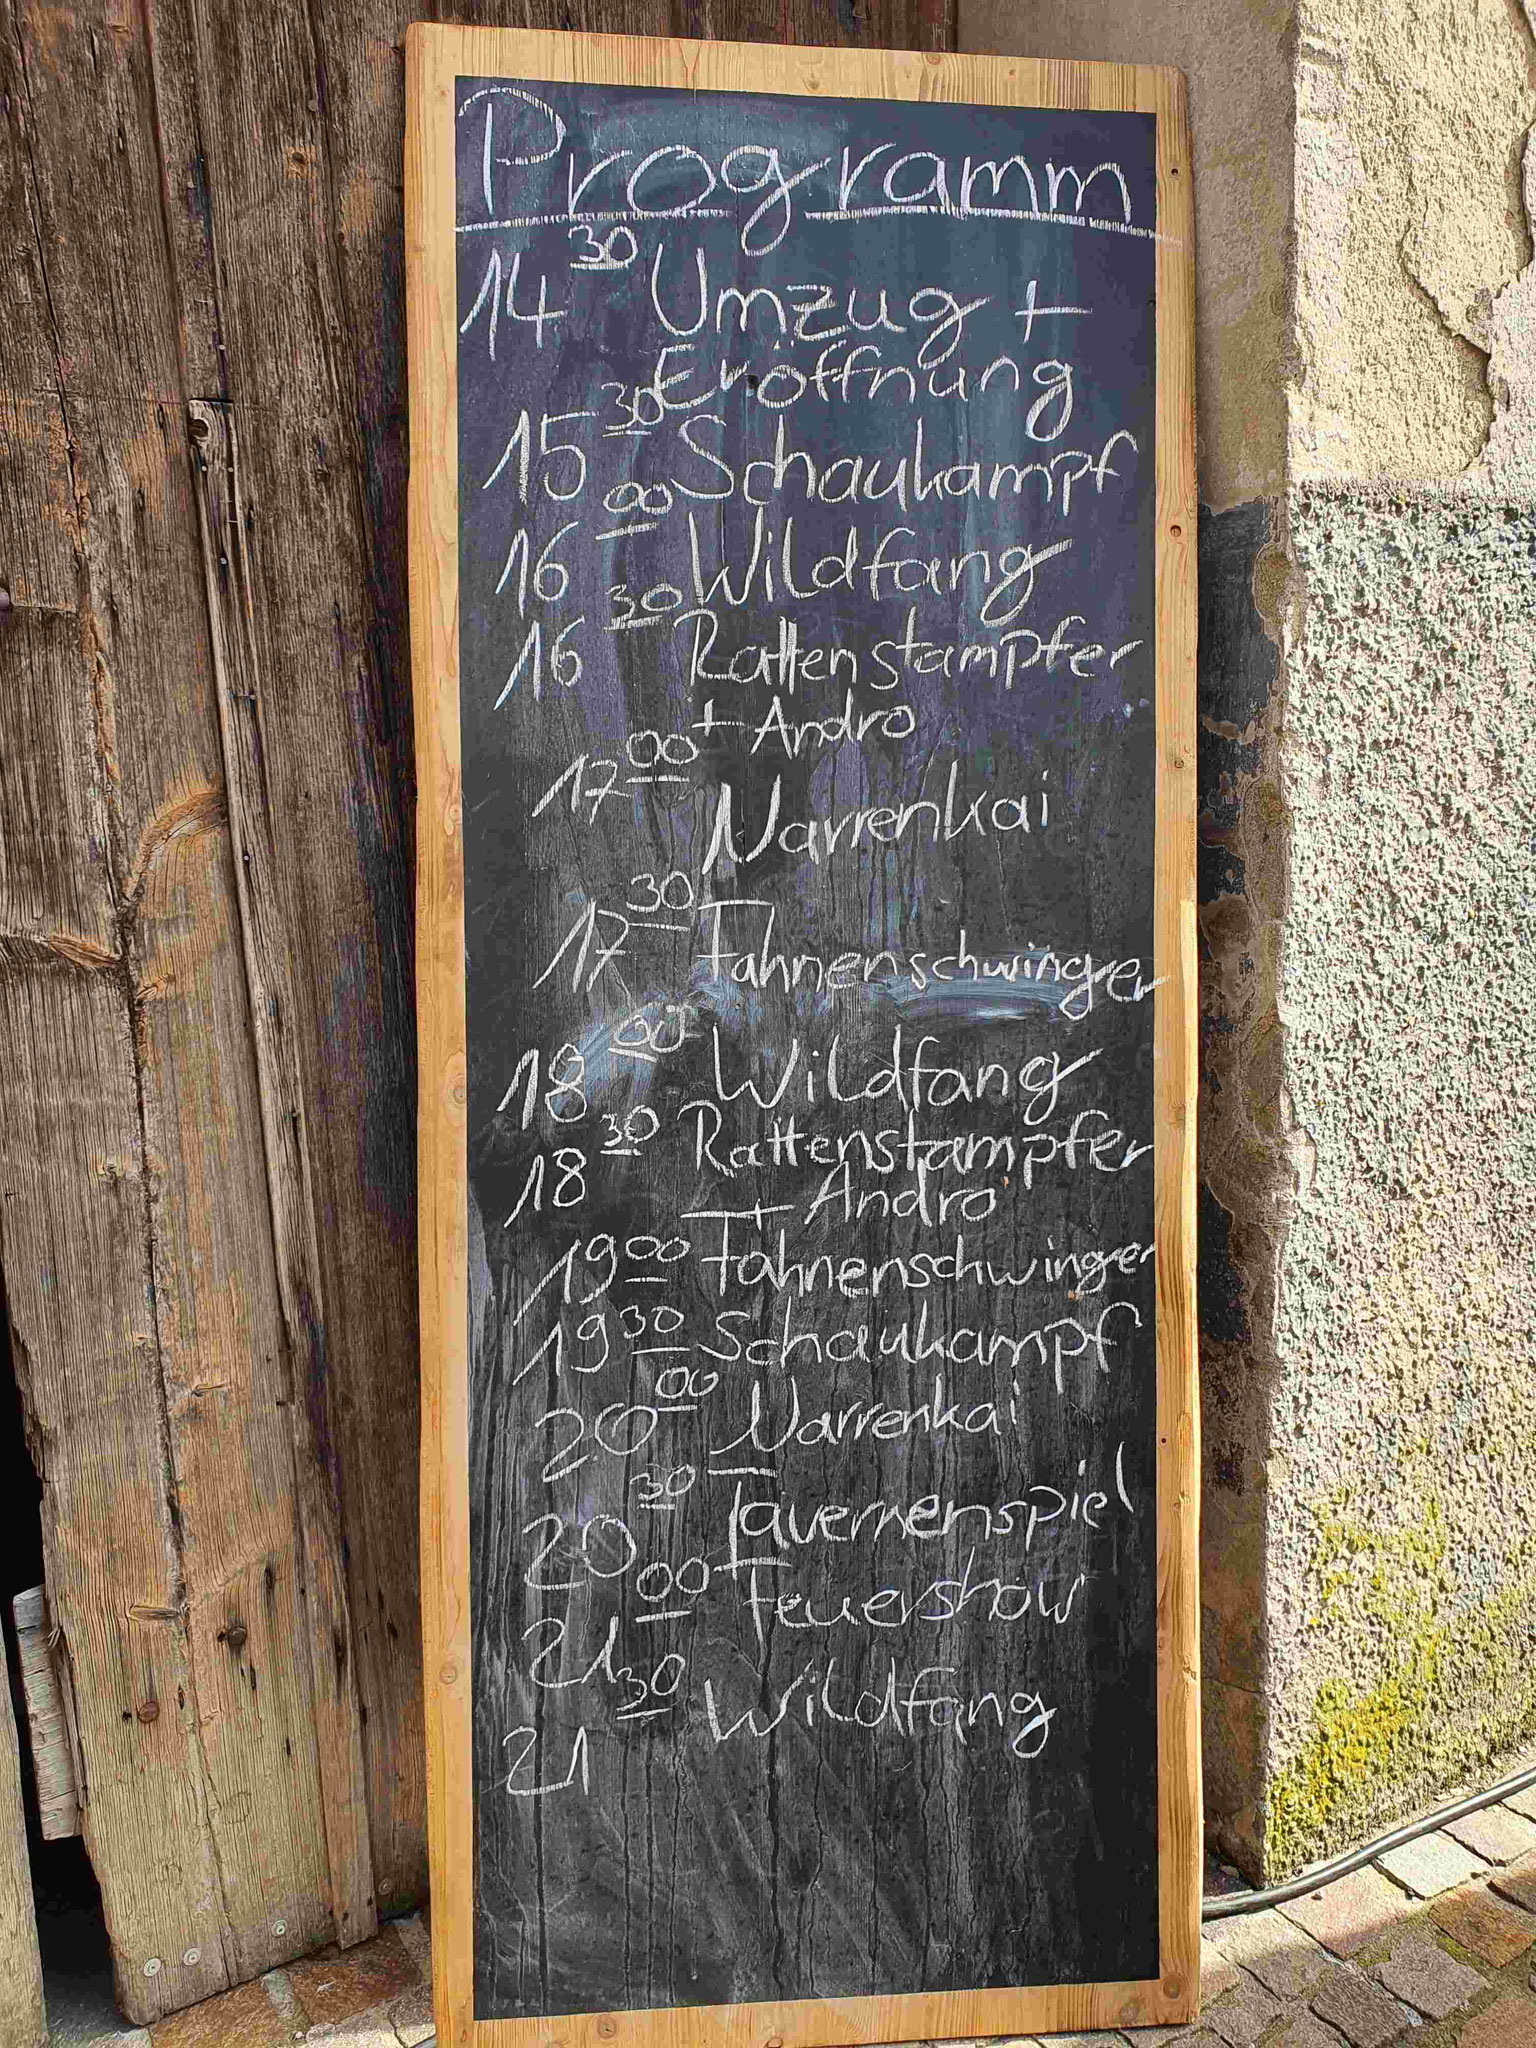 Programm
14 30 Umzug +
Eröffnung
15 30 Schaukampf
16 00 Wildfang
16 30 Rattenstampfer
+ Andro
17 00 Narrenkai
17 30 Fahnenschwinger
18 00 Wildfang
18 30 Rattenstampfer
+ Andro
19 00 Fahnenschwinger
19 30 Schaukampf
20 00 Narrenkai
20 30 Tavernenspiel
21 00 Feuershow
21 30 Wildfang